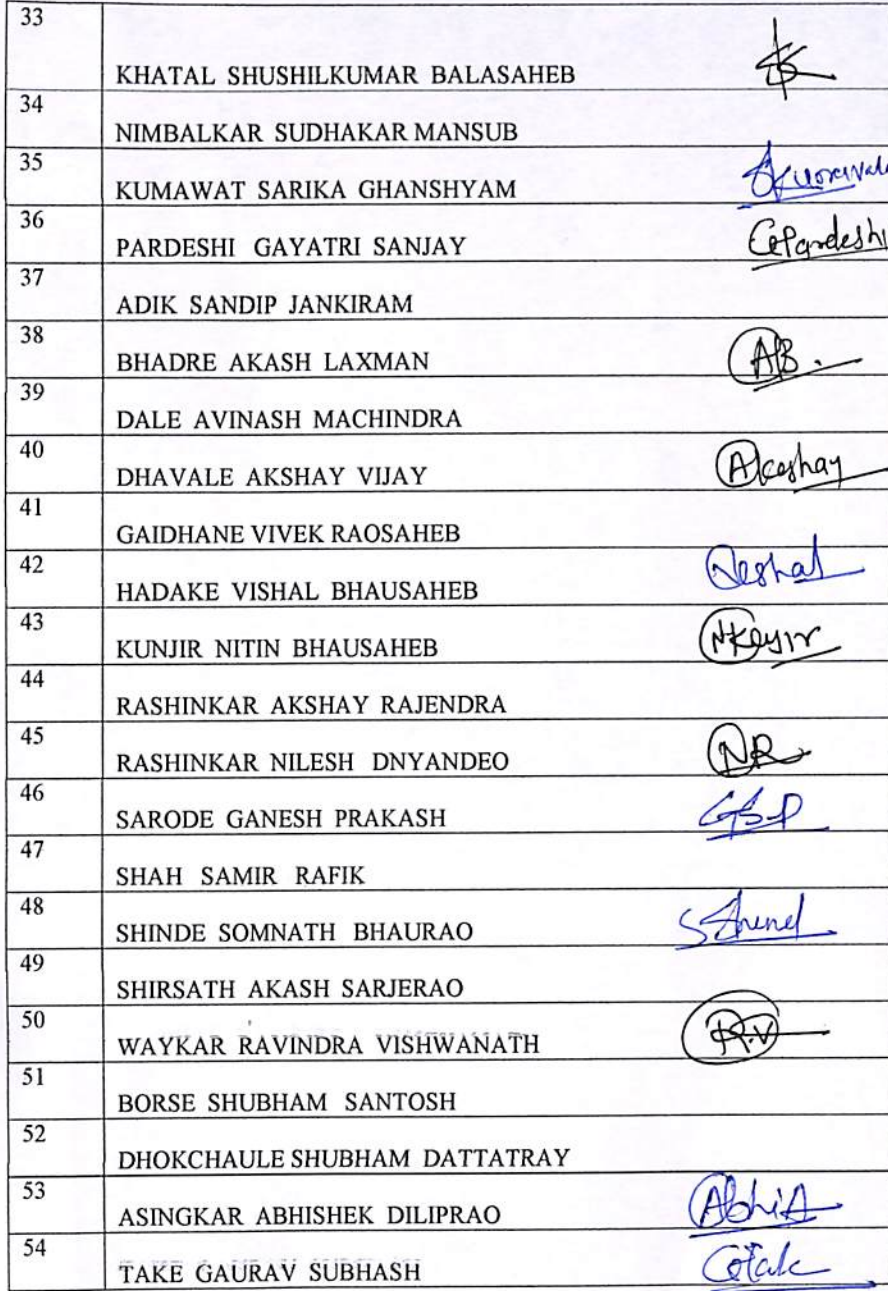 33
KHATAL SHUSHILKUMAR BALASAHEB
34
NIMBALKAR SUDHAKAR MANSUB
35
KUMAWAT SARIKA GHANSHYAM
36
PARDESHI GAYATRI SANJAY GPardeshi
37
ADIK SANDIP JANKIRAM
38
BHADRE AKASH LAXMAN AB.
39
DALE AVINASH MACHINDRA
40
DHAVALE AKSHAY VIJAY Akshay
41
GAIDHANE VIVEK RAOSAHEB
42
HADAKE VISHAL BHAUSAHEB
43
KUNJIR NITIN BHAUSAHEB
44
RASHINKAR AKSHAY RAJENDRA
45
RASHINKAR NILESH DNYANDEO NR
46
SARODE GANESH PRAKASH GSP
47
SHAH SAMIR RAFIK
48
SHINDE SOMNATH BHAURAO
49
SHIRSATH AKASH SARJERAO
50
WAYKAR RAVINDRA VISHWANATH R.V
51
BORSE SHUBHAM SANTOSH
52
DHOKCHAULE SHUBHAM DATTATRAY
53
ASINGKAR ABHISHEK DILIPRAO AbhiA
54
TAKE GAURAV SUBHASH